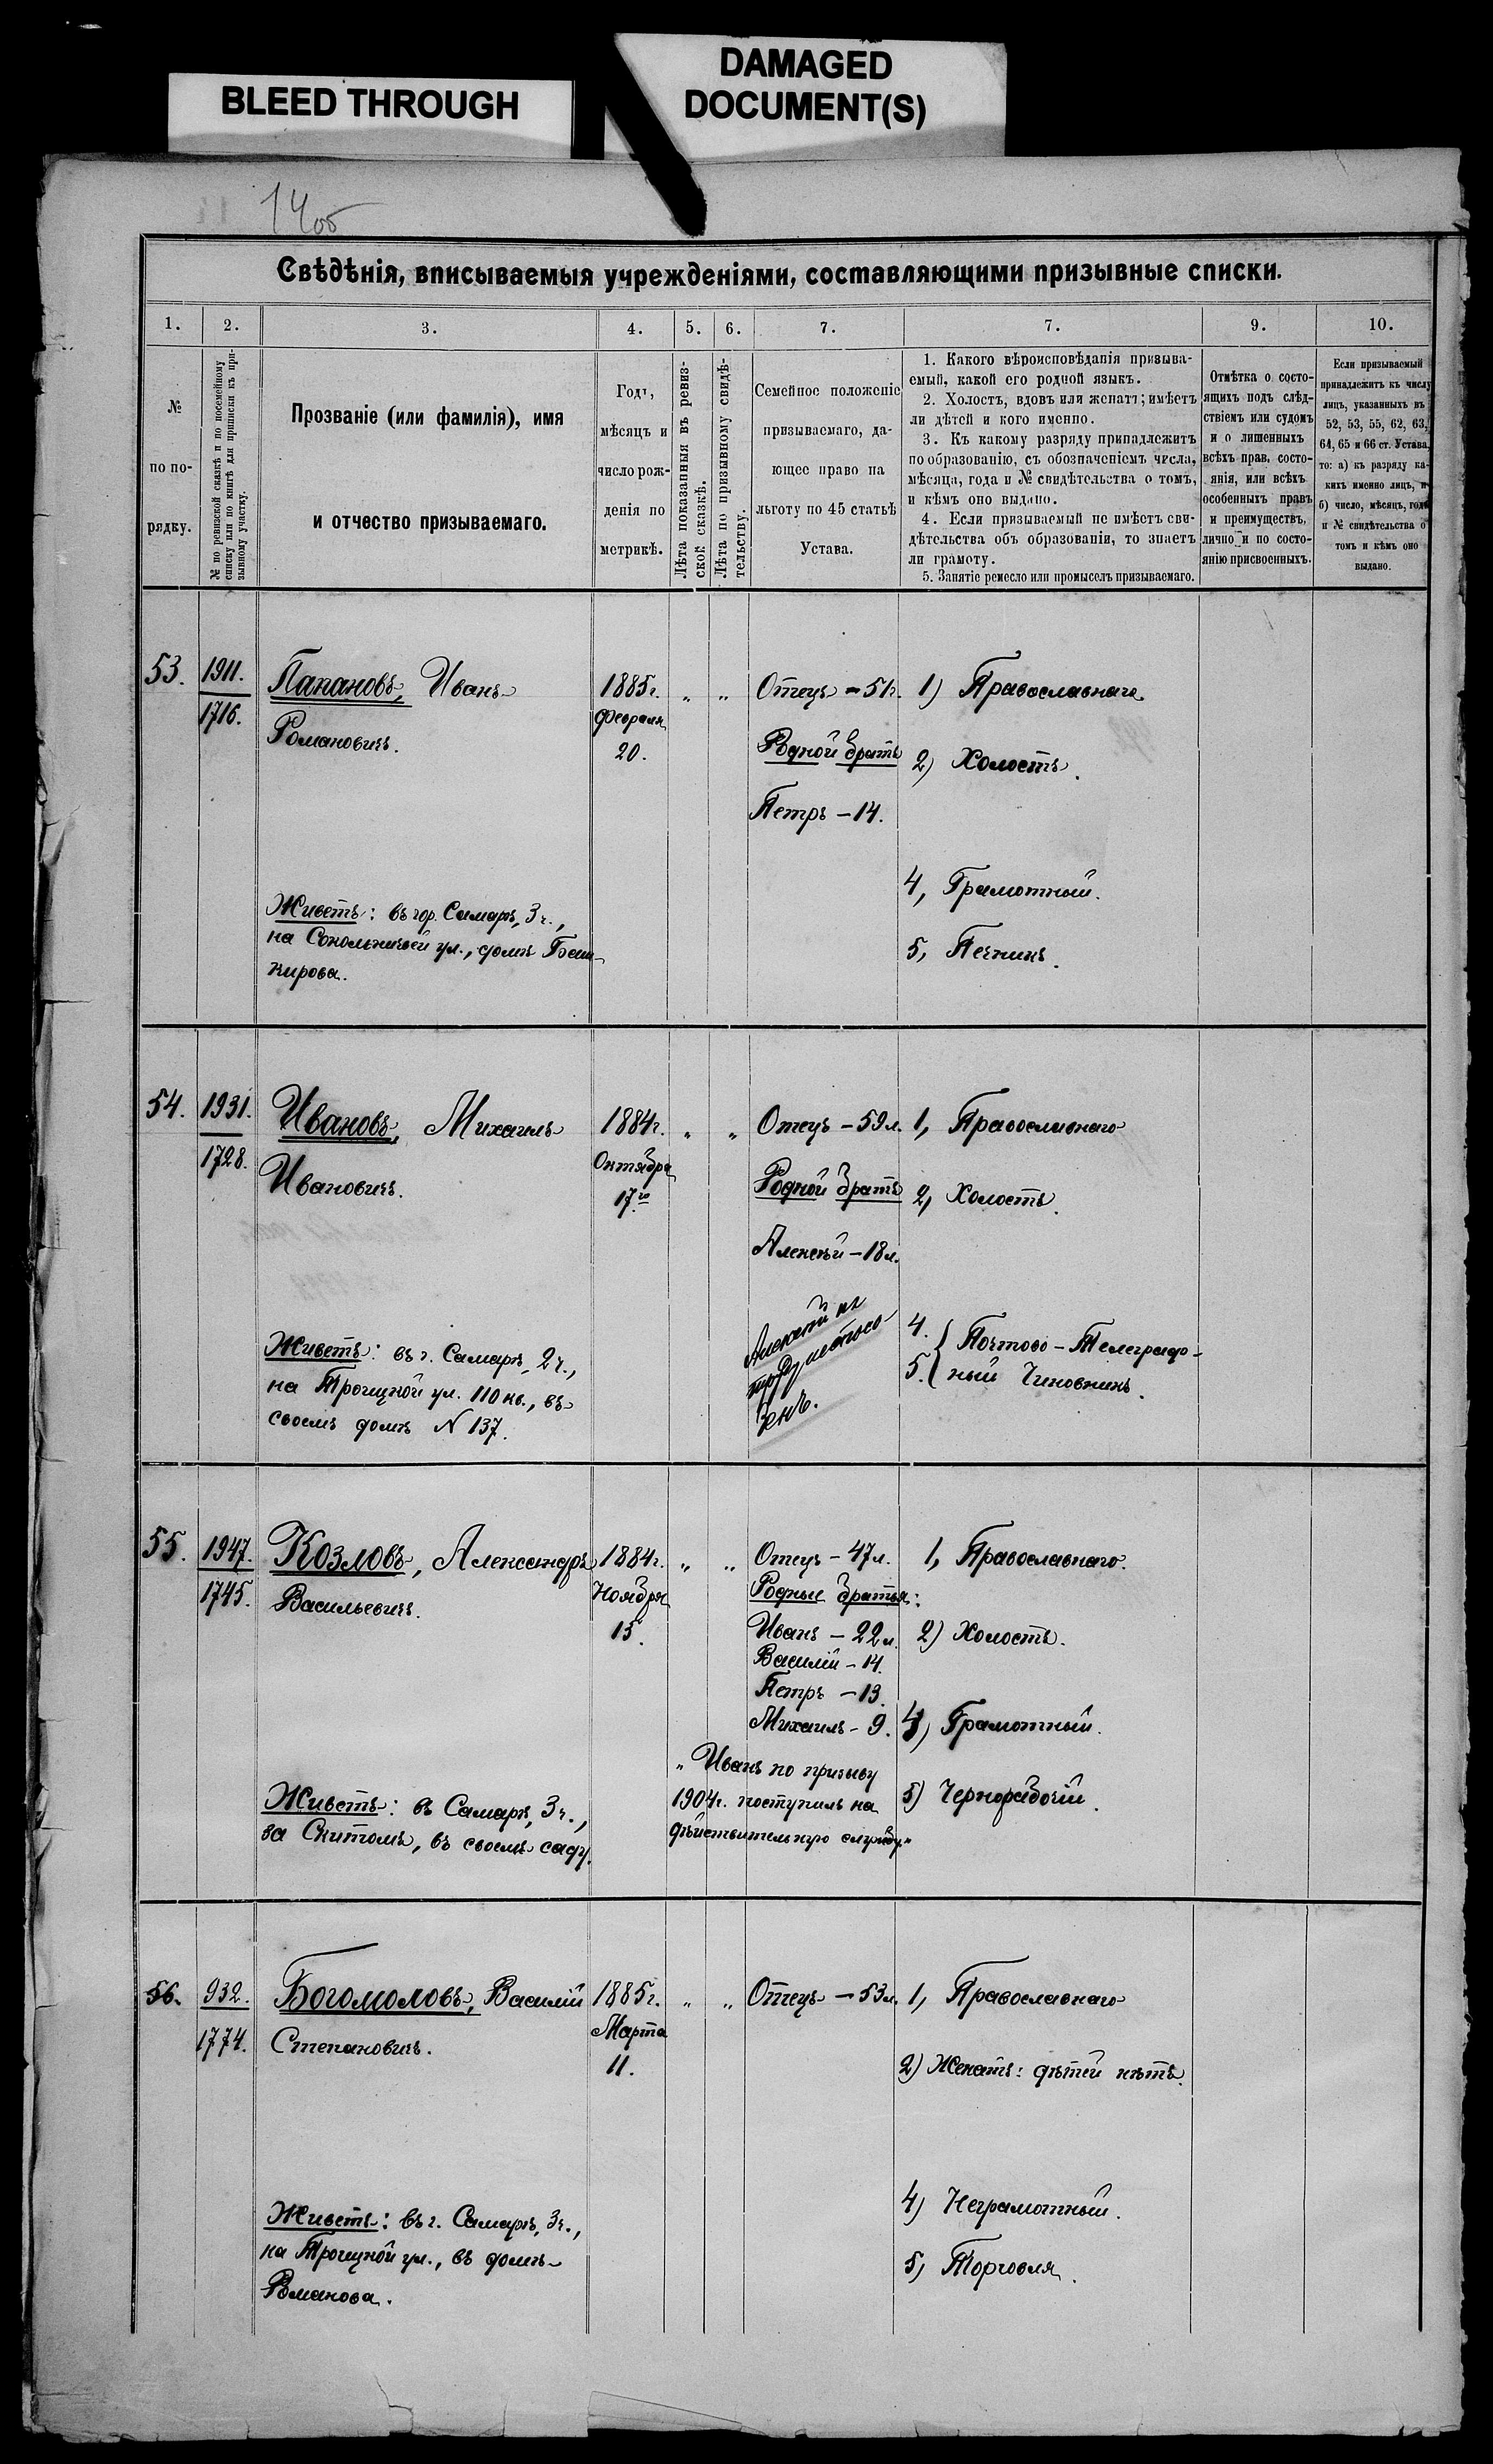 BLEED THROUGH
DAMAGED
DOCUMENT(S)
14об
Свѣдѣнія, вписываемыя учрежденіями, составляющими призывные списки.
1.
2.
3.
4.
5.
6.
7.
7.
9.
10.
№
по по-
рядку.
№ по ревизской сказкѣ и по посемейному
списку или по книгѣ для приписки къ при-
зывному участку.
Прозваніе (или фамилія), имя
и отчество призываемаго.
Годъ,
мѣсяцъ и
число рож-
денія по
метрикѣ.
Лѣта показанныя въ ревиз-
ской сказкѣ.
Лѣта по призывному свидѣ-
тельству.
Семейное положеніе
призываемаго, да-
ющее право на
льготу по 45 статьѣ
Устава.
1. Какого вѣроисповѣданія призыва-
емый, какой его родной языкъ.
2. Холостъ, вдовъ или женатъ; имѣетъ
ли дѣтей и кого именно.
3. Къ какому разряду принадлежитъ
по образованію, съ обозначеніемъ числа,
мѣсяца, года и № свидѣтельства о томъ,
и кѣмъ оно выдано.
4. Если призываемый не имѣетъ сви-
дѣтельства объ образованіи, то знаетъ
ли грамоту.
5. Занятіе ремесло или промыселъ призываемаго.
Отмѣтка о состо-
ящихъ подъ слѣд-
ствіемъ или судомъ
и о лишенныхъ
всѣхъ прав. состо-
янія, или всѣхъ
особенныхъ правъ
и преимуществъ,
лично и по состо-
янію присвоенныхъ.
Если призываемый
принадлежитъ къ числу
лицъ, указанныхъ въ
52, 53, 55, 62, 63,
64, 65 и 66 ст. Устава,
то: а) къ разряду ка-
кихъ именно лицъ, и
б) число, мѣсяцъ, годъ
и № свидѣтельства о
томъ и кѣмъ оно
выдано.
53.
1911.
1716.
Папановъ, Иванъ
Романовичъ.
Живетъ: въ гор. Самарѣ, 3 ч.,
на Сокольничьей ул., домъ Баш-
кирова.
1885 г.
Февраля
20.
" "
Отецъ – 51 г.
Родной братъ
Петръ – 14.
1) Православнаго.
2) Холостъ.
4, Грамотный.
5, Печникъ.
54.
1931.
1728.
Ивановъ, Михаилъ
Ивановичъ.
Живетъ: въ г. Самарѣ, 2 ч.,
на Троицкой ул. 110 кв., въ
своемъ домѣ N 137.
1884 г.
Октября
17го
" "
Отецъ – 59 л.
Родной братъ
Алексѣй – 18 л.
Алексѣй къ
1, Православнаго
2, Холостъ.
4.
5. { Почтово-Телеграф-
ный Чиновникъ.
55.
1947.
1745.
Козловъ, Александръ
Васильевичъ.
Живетъ: въ Самарѣ, 3 ч.,
за Скитомъ, въ своемъ саду.
1884 г.
Ноября
15.
" "
Отецъ – 47 л.
Родные братья:
Иванъ – 22 л.
Василій – 14.
Петръ – 13.
Михаилъ – 9.
"Иванъ по призыву
1904 г. поступилъ на
дѣйствительную службу"
1, Православнаго.
2) Холостъ.
4) Грамотный.
5) Чернорабочій.
56.
932.
1774.
Богомоловъ, Василій
Степановичъ.
Живетъ: въ г. Самарѣ, 3 ч.,
на Троицкой ул., въ домѣ
Романова.
1885 г.
Марта
11.
" "
Отецъ – 53 л.
1, Православнаго
2) Женатъ: дѣтей нѣтъ.
4) Неграмотный.
5) Торговля.